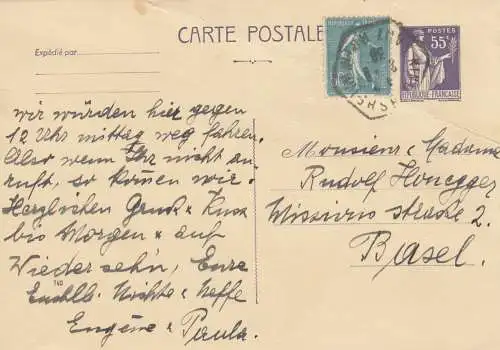 CARTE POSTALE
Expédié par
POSTES
55c
RÉPUBLIQUE-FRANÇAISE
wir würden hier gegen
12 Uhr mittag weg fahren.
Also wenn Ihr nicht an-
ruft, so kommen wir.
Herzlichen Gruss & Kuss
bis Morgen & auf
Wiedersehn, Eure
Nichte & Neffe
Eugène & Paula.
Monsieur & Madame
Rudolf Honegger
Missionsstrasse 2.
Basel.